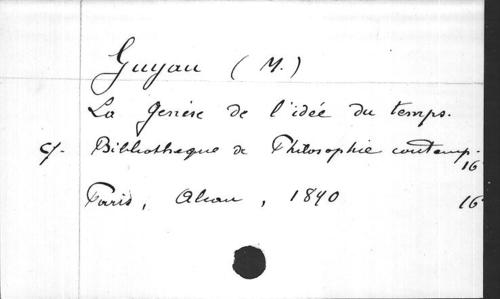 Guyau (M.)
La Genèse de l'idée du temps.
cf. Bibliothèque de Philosophie contemp.
16
Paris, Alcan, 1890 16